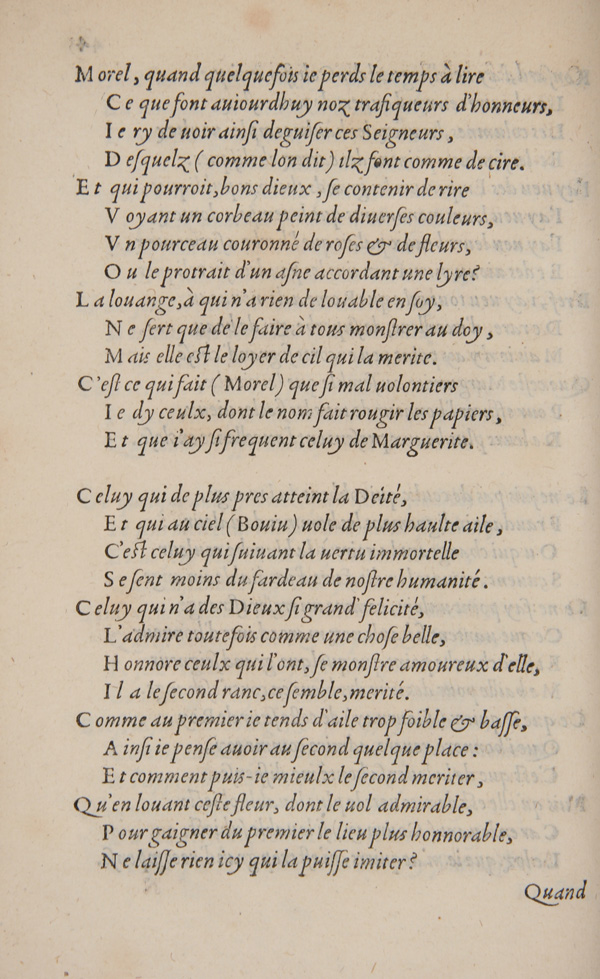 Morel, quand quelquefois ie perds le temps à lire
Ce que font auiourdhuy noz trafiqueurs d'honneurs,
Ie ry de uoir ainsi deguiser ces Seigneurs,
Desquelz (comme lon dit) ilz font comme de cire.
Et qui pourroit, bons dieux, se contenir de rire
Voyant un corbeau peint de diuerses couleurs,
Vn pourceau couronné de roses & de fleurs,
Ou le protrait d'un asne accordant une lyre?
La louange, à qui n'a rien de louable en soy,
Ne sert que de le faire à tous monstrer au doy,
Mais elle est le loyer de cil qui la merite.
C'est ce qui fait (Morel) que si mal uolontiers
Ie dy ceulx, dont le nom fait rougir les papiers,
Et que i'ay si frequent celuy de Marguerite.
Celuy qui de plus pres atteint la Deité,
Et qui au ciel (Bouiu) uole de plus haulte aile,
C'est celuy qui suiuant la uertu immortelle
Se sent moins du fardeau de nostre humanité.
Celuy qui n'a des Dieux si grand' felicité,
L'admire toutefois comme une chose belle,
Honnore ceulx qui l'ont, se monstre amoureux d'elle,
Il a le second ranc, ce semble, merité.
Comme au premier ie tends d'aile trop foible & basse,
Ainsi ie pense auoir au second quelque place:
Et comment puis-ie mieulx le second meriter,
Qu'en louant ceste fleur, dont le uol admirable,
Pour gaigner du premier le lieu plus honnorable,
Ne laisse rien icy qui la puisse imiter?
Quand